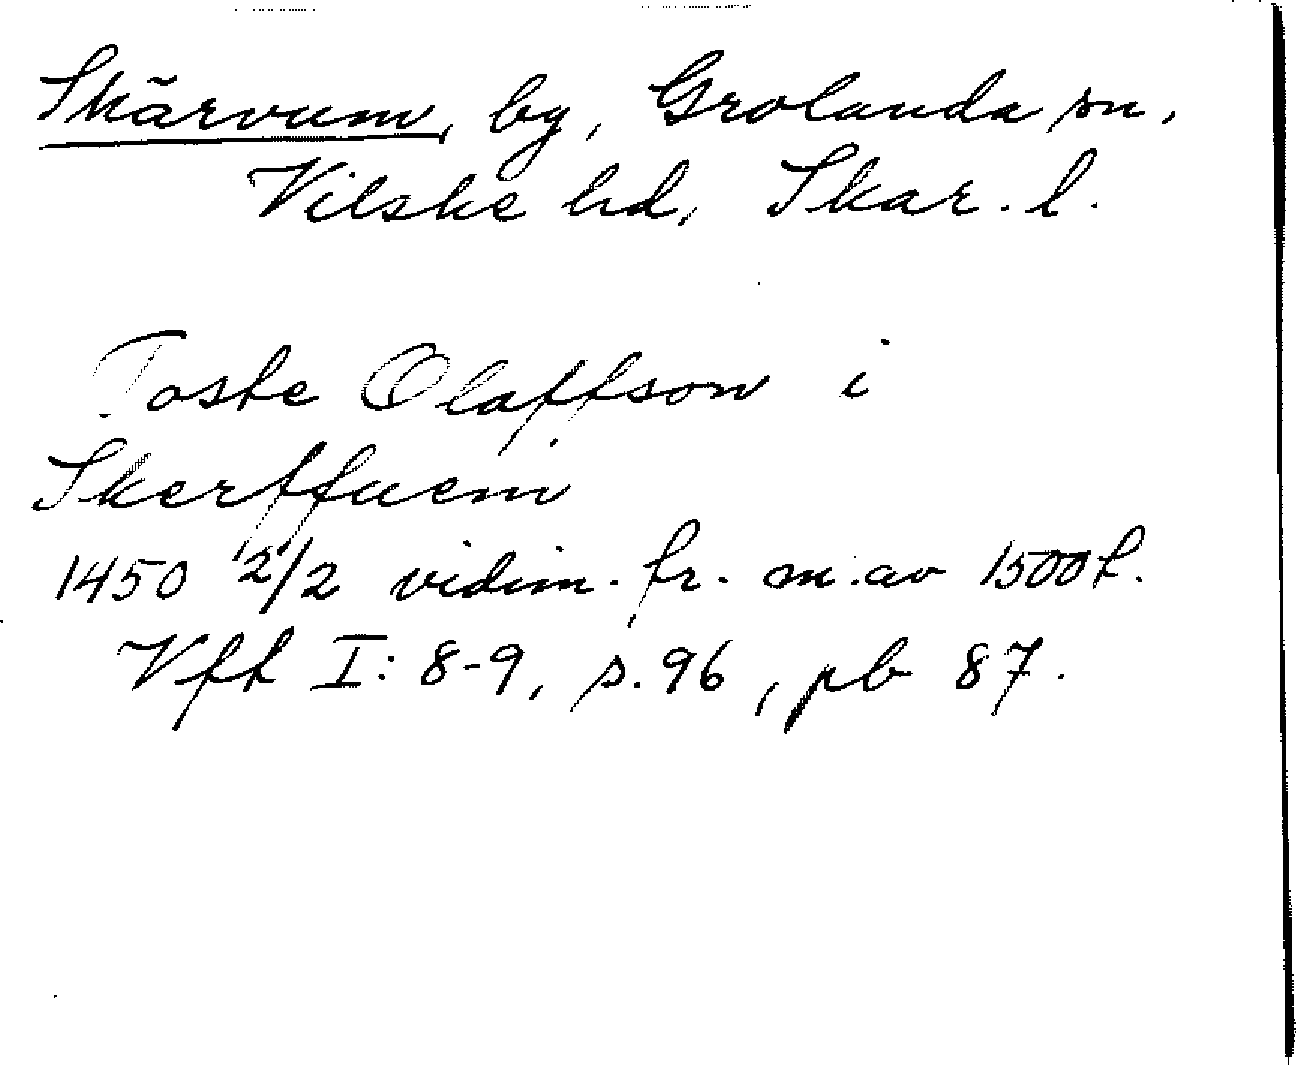 Skärvum, by, Grolanda sn,
Vilske hd, Skar. l.
Toste Olaffson i
Skerffuem
1450 2/2 vidim. fr. m. av 1500 t.
Vft I: 8-9, s. 96, pb 87.